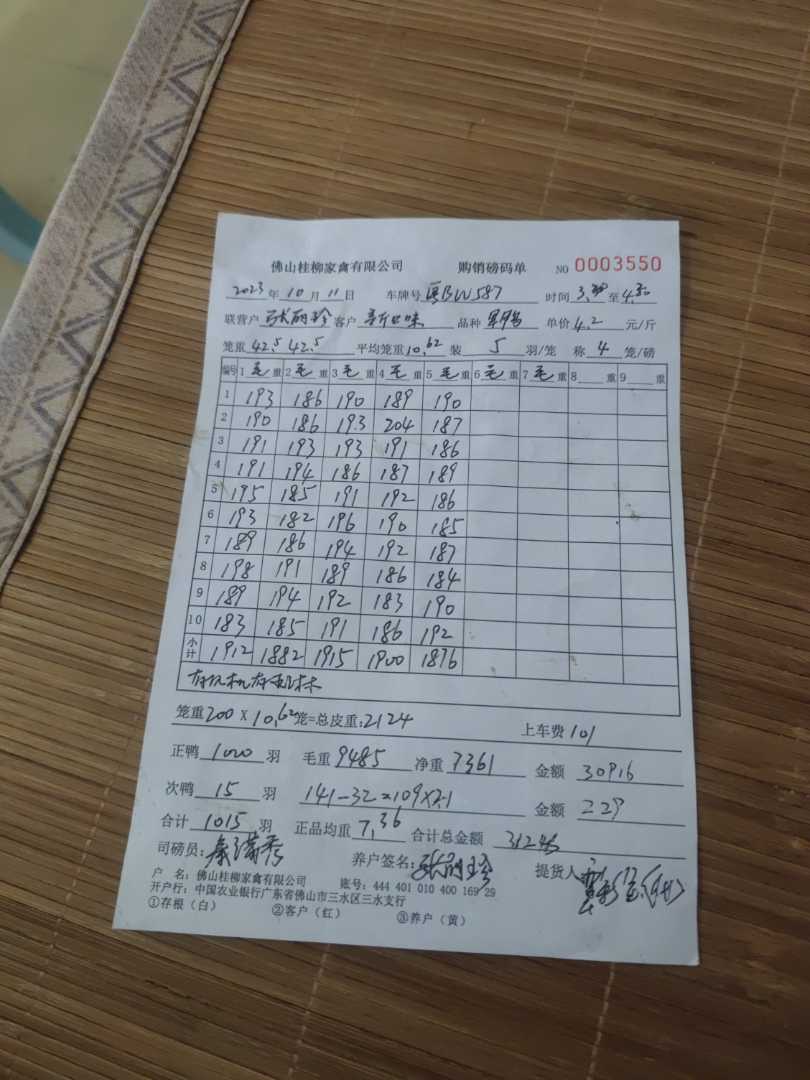 佛山桂柳家禽有限公司 购销磅码单 NO 0003550
2023年10月11日 车牌号 BW587 时间3.30至4.30
联营户 张丽玲 客户 新口味 品种 单价4.2元/斤
笼重42.5 42.5 平均笼重10.62 装5羽/笼 称4笼/磅
编号 1毛重 2毛重 3毛重 4毛重 5毛重 6毛重 7毛重 8重 9重
1 193 186 190 189 190
2 190 186 193 204 187
3 191 193 193 191 186
4 191 194 186 187 189
5 195 185 191 192 186
6 193 182 196 190 185
7 189 186 194 192 187
8 198 191 189 186 184
9 189 194 192 183 190
10 183 185 191 186 192
小计 1912 1882 1915 1900 1876
笼重200×10.62笼=总皮重:2124 上车费101
正鸭1000羽 毛重9485 净重7361 金额30916
次鸭15羽 141-32=109×2.1 金额229
合计1015羽 正品均重7.36 合计总金额31246
司磅员: 养户签名:张丽玲 提货人
户 名:佛山桂柳家禽有限公司 账号:444 401 010 400 169 29
开户行:中国农业银行广东省佛山市三水区三水支行
①存根(白) ②客户(红) ③养户(黄)